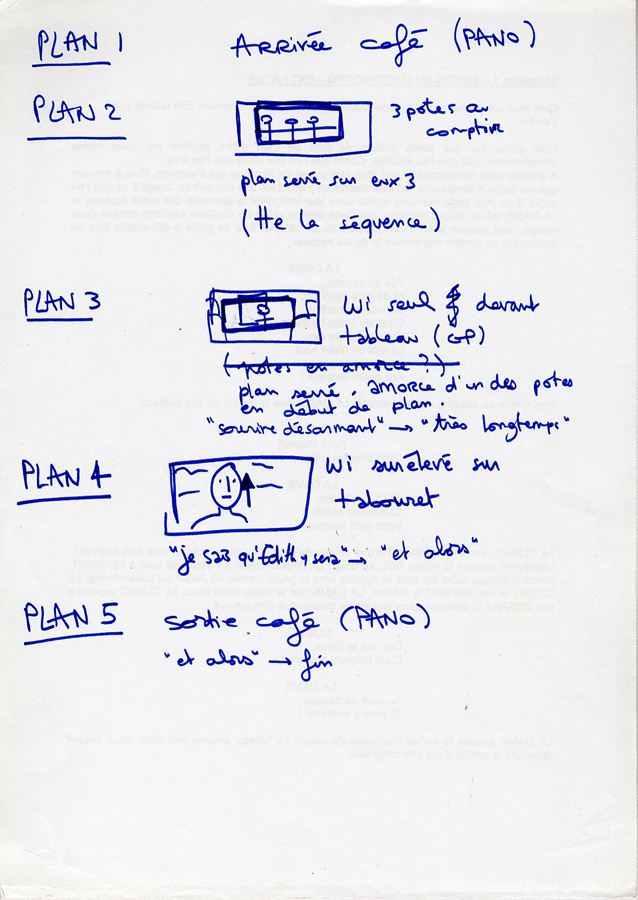 PLAN 1 ARRIVÉE café (PANO)
PLAN 2 3 potes au
comptoir
plan serré sur eux 3
(Tte la séquence)
PLAN 3 Wi seul devant
tableau (GP)
(potes en amorce ?)
plan serré. amorce d'un des potes
en début de plan.
"sourire désarmant" → "très longtemps"
PLAN 4 Wi surélevé sur
tabouret
"je sais qu'Edith y sera" → "et alors"
PLAN 5 sortie café (PANO)
"et alors" → fin